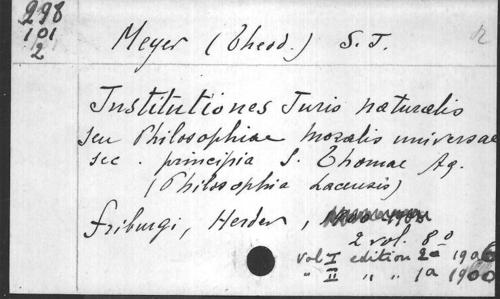 298
101
2
Meyer (Theod.) S. J.
Institutiones Juris naturalis
seu Philosophiae moralis universae
sec. principia S. Thomae Aq.
(Philosophia Lacensis)
Friburgi, Herder,
2 vol. 8°
vol I edition 2a 1906
" II " " 1a 1900